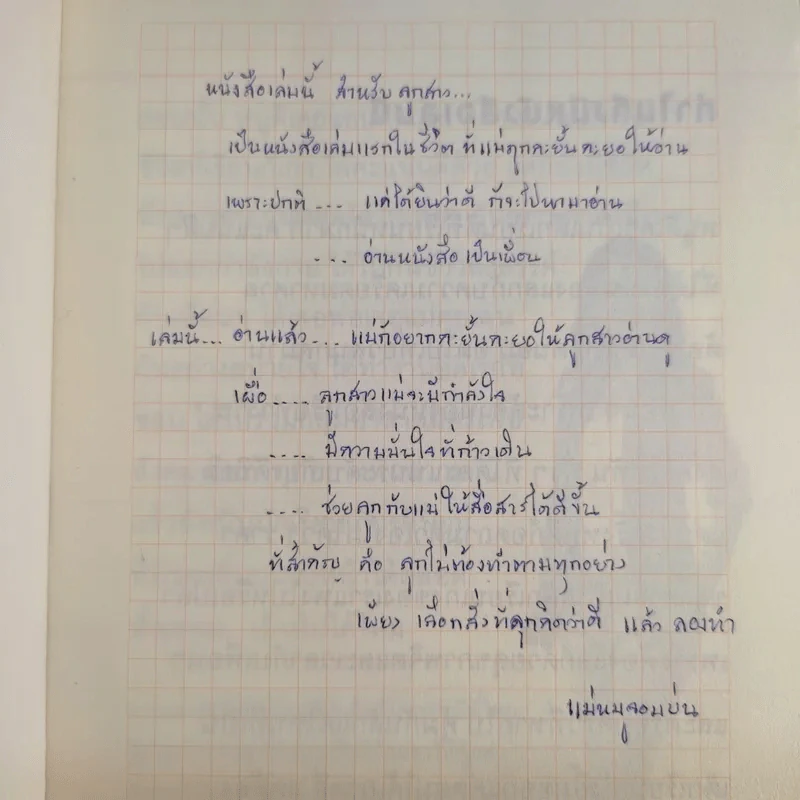 หนังสือเล่มนี้ สำหรับ ลูกสาว...
เป็นหนังสือเล่มแรกในชีวิต ที่แม่ถูกคะยั้นคะยอให้อ่าน
เพราะปกติ ... แค่ได้ยินว่าดี ก็จะไปหามาอ่าน
... อ่านหนังสือ เป็นเพื่อน
เล่มนี้... อ่านแล้ว... แม่ก็อยากคะยั้นคะยอให้ลูกสาวอ่านดู
เผื่อ.... ลูกสาวแม่จะมีกำลังใจ
.... มีความมั่นใจ ที่ก้าวเดิน
.... ช่วยลูกกับแม่ ให้สื่อสารได้ดีขึ้น
ที่สำคัญ คือ ลูกไม่ต้องทำตามทุกอย่าง
เพียง เลือกสิ่งที่ลูกคิดว่าดี แล้ว ลองทำ
แม่หมูจอมบ่น